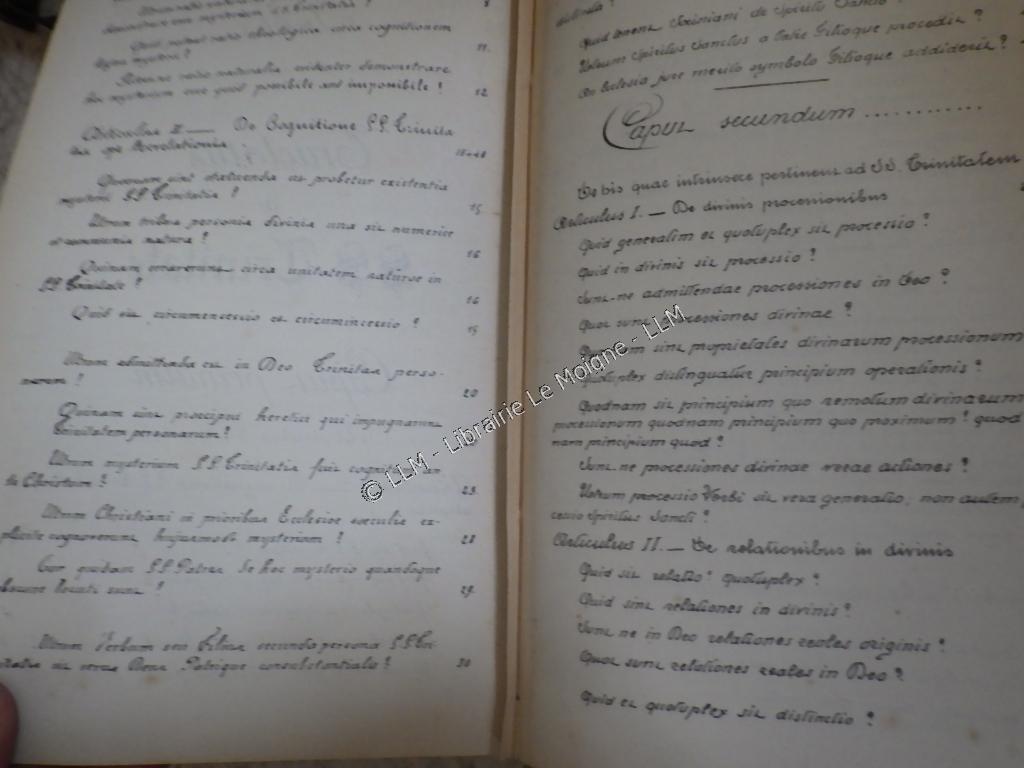 demonstrare mysterium SS Trinitatis ?
8
Quid valeat ratio theologica circa cognitionem
hujus mysterii ?
11.
Utrum ratio naturalis evidenter demonstrare
hoc mysterium esse quid possibile aut impossibile ?
12
Articulus II — De Cognitione SS. Trinita
tis ope Revelationis
Quomodo sint statuenda ac probetur existentia
mysterii SS Trinitatis ?
15
Utrum tribus personis divinis una sit numerice
et communis natura ?
16
Quinam erraverunt circa unitatem naturae in
SS. Trinitate ?
16
Quid sit circumincessio et circuminsessio ?
19
Utrum admittenda sit in Deo Trinitas perso-
narum ?
20
Quinam sint praecipui heretici qui impugnarunt
Trinitatem personarum ?
Utrum mysterium SS Trinitatis fuit
te Christum ?
23.
Utrum Christiani in prioribus Ecclesiae saeculis ex-
plicite cognoverunt hujusmodi mysterium ?
28
Cur quidam SS Patres de hoc mysterio quandoque
locuti sunt ?
29.
Utrum Verbum seu Filius secunda persona SS Tri-
nitatis sit verus Deus Patrique consubstantialis ?
30
Quid de Spiritu Sancto ?
Utrum Spiritus Sanctus a Patre Filioque procedit ?
An Ecclesia jure merito symbolo Filioque addiderit ?
Caput secundum ..........
De his quae intrinsece pertinent ad SS. Trinitatem
Articulus I. — De divinis processionibus
Quid generatim et quotuplex sit processio ?
Quid in divinis sit processio ?
Sunt-ne admittendae processiones in Deo ?
Quot sunt processiones divinae ?
Quaenam sint proprietates divinarum processionum
Quotuplex distinguatur principium operationis ?
Quodnam sit principium quo remotum divinarum
processionum quodnam principium quo proximum ? quod
nam principium quod ?
Sunt ne processiones divinae verae actiones ?
Utrum processio Verbi sit vera generatio, non autem
cessio Spiritus Sancti ?
Articulus II. — De relationibus in divinis
Quid sit relatio ? quotuplex ?
Quid sint relationes in divinis ?
Sunt ne in Deo relationes reales originis ?
Quot sunt relationes reales in Deo ?
Quid et quotuplex sit distinctio ?
© LLM - Librairie Le Moigne - LLM